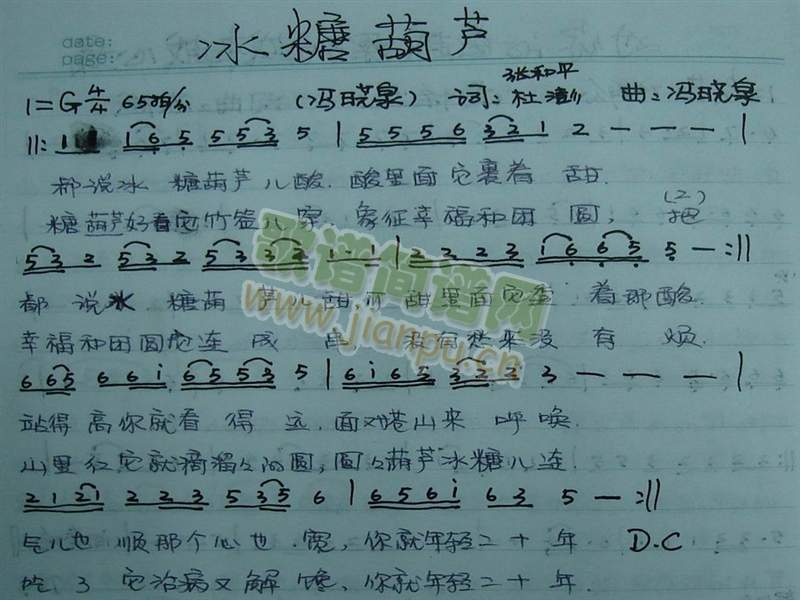 date:
page:
冰糖葫芦
1=G 4/4 65拍/分 (冯晓泉) 词: 张和平 杜澎 曲:冯晓泉
||: 1 1 1 6 5 5 5 3 5 | 5 5 5 6 3 2 1 2 — — — |
都说冰 糖葫芦儿酸. 酸里面它裹着 甜.
糖葫芦好看它竹签儿穿 象征幸福和团 圆, (2) 把
5 3 2 5 3 2 5 3 3 2 1·1 | 2 2 2 3 1 6 6 5 5 — :||
都 说冰 糖葫 芦儿甜 可 甜里面它透 着那酸
幸福和团圆它连 成 串 没有愁来没 有 烦.
6 6 5 6 6 i 6 5 5 3 5 | 6 i 6 5 3 2 2 3 — — — |
站得 高你就看 得 远, 面对苍山来 呼唤.
山里红它就滴溜々的圆, 圆々葫芦冰糖儿连.
2 1 2 1 2 2 3 5 3 5 6 | 6 5 6 i 6 3 5 — :||
气儿也 顺那个心也 宽, 你就年轻二十 年 D.C
吃了 它治病又解 馋, 你就年轻二十 年.
歌谱简谱网
www.jianpu.cn